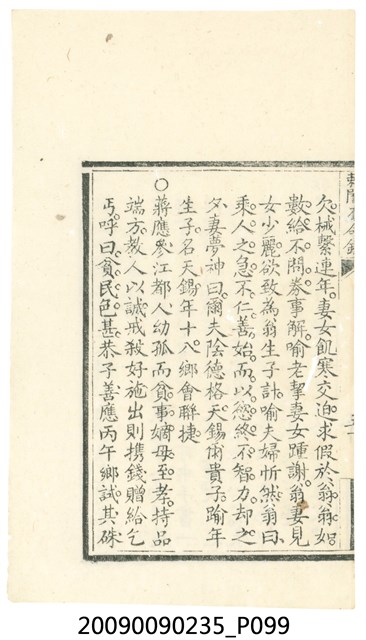 久械繫連年妻女飢寒交迫求假於翁翁如
數給不問券事解喻老挈妻女踵謝翁妻見
女少麗欲致為翁生子計喻夫婦忻然翁曰
乘人之急不仁善始而以慾終不智力却之
夕妻夢神曰爾夫陰德格天錫爾貴子踰年
生子名天錫年十八鄉會聯捷
○蔣應參江都人幼孤而貧事嫡母至孝持品
端方教人以誠戒殺好施出則携錢贈給乞
丐呼曰貧民色甚恭子善應丙午鄉試其硃
20090090235_P099